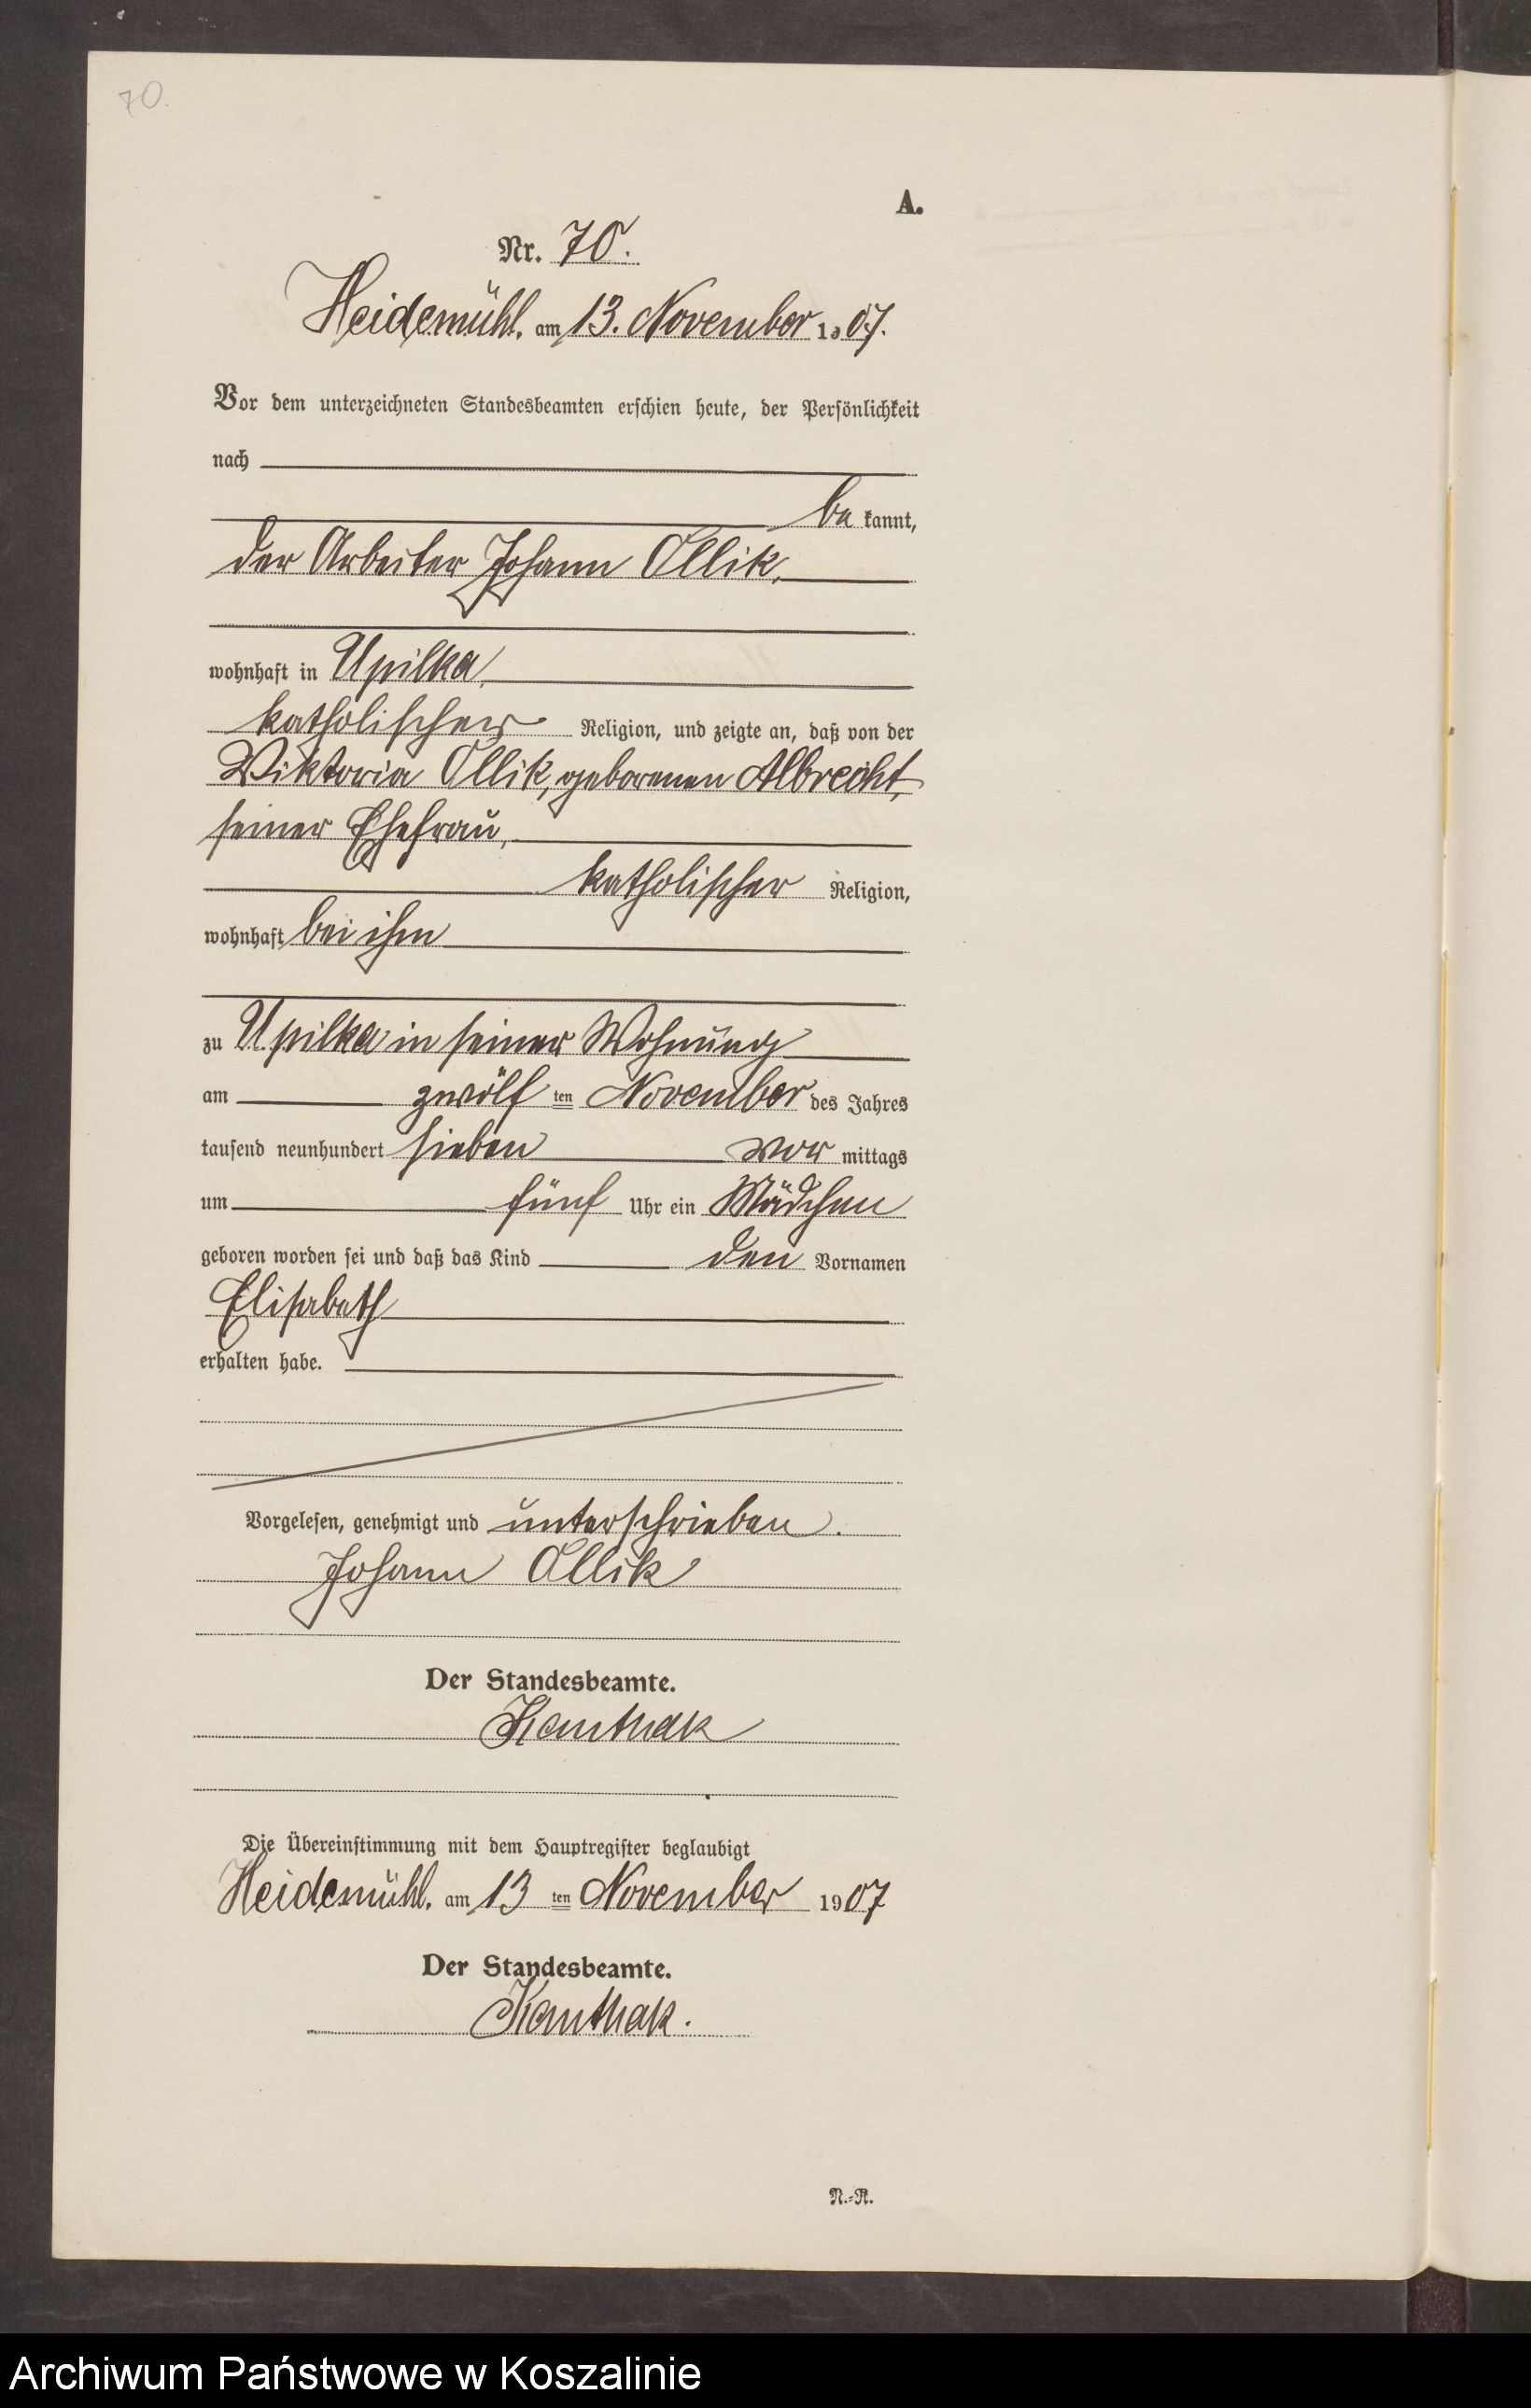 70.
A.
Nr. 70.
Heidemühl, am 13. November 1907.
Vor dem unterzeichneten Standesbeamten erschien heute, der Persönlichkeit
nach
be kannt,
der Arbeiter Johann Ollik,
wohnhaft in Upilka,
katholischer Religion, und zeigte an, daß von der
Viktoria Ollik, geborenen Albrecht,
seiner Ehefrau,
katholischer Religion,
wohnhaft bei ihm
zu Upilka in seiner Wohnung
am zwölf ten November des Jahres
tausend neunhundert sieben vor mittags
um fünf Uhr ein Mädchen
geboren worden sei und daß das Kind den Vornamen
Elisabeth
erhalten habe.
Vorgelesen, genehmigt und unterschrieben.
Johann Ollik
Der Standesbeamte.
Kanthak
Die Übereinstimmung mit dem Hauptregister beglaubigt
Heidemühl, am 13 ten November 1907
Der Standesbeamte.
Kanthak.
N.-R.
Archiwum Państwowe w Koszalinie